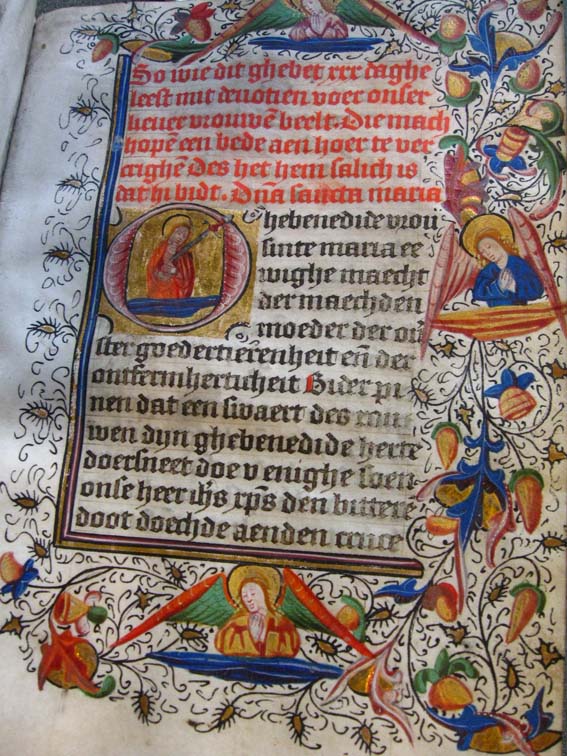 So wie dit ghebet xxx daghe
leest mit deuotien voer onser
lieuer vrouwē beelt. Die mach
hopē een bede aen hoer te ver
crighē Des het hem salich is
dat hi bidt. Dn̄a sancta maria
Ghebenedide vrou
sinte maria ee
wighe maecht
der maechden
moeder der on
ster goedertierenheit eñ der
ontfermherticheit Bider pi
nen dat een swaert des rou
wen dyn ghebenedide herte
doersneet doe v enighe soen
onse heer ih̄s xp̄s den bittere
doot doechde aenden cruce